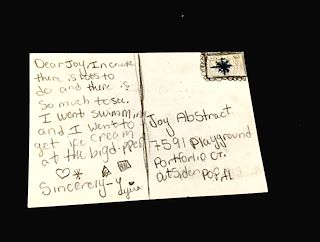 Dear Joy, In
there is lots to
do and there is
so much to see.
I went swimming
and I went to
get ice cream
at the big
Sincerely-
Joy Abstract
7591 Playground
Portfolio Ct.
outsider Pop.